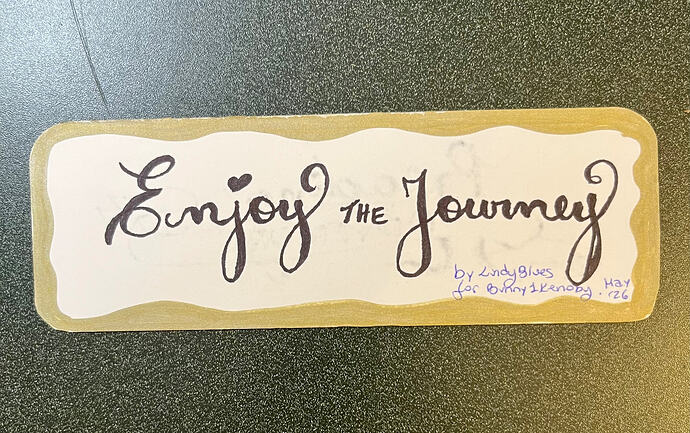 Enjoy THE Journey
by LindyBlues
for Bunny1Kenoby. May '26